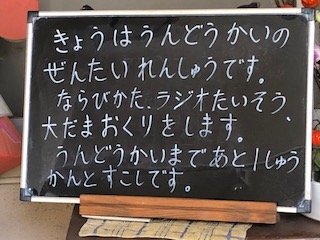 きょうはうんどうかいの
ぜんたいれんしゅうです。
ならびかた、ラジオたいそう、
大だまおくりをします。
うんどうかいまであと1しゅう
かんとすこしです。